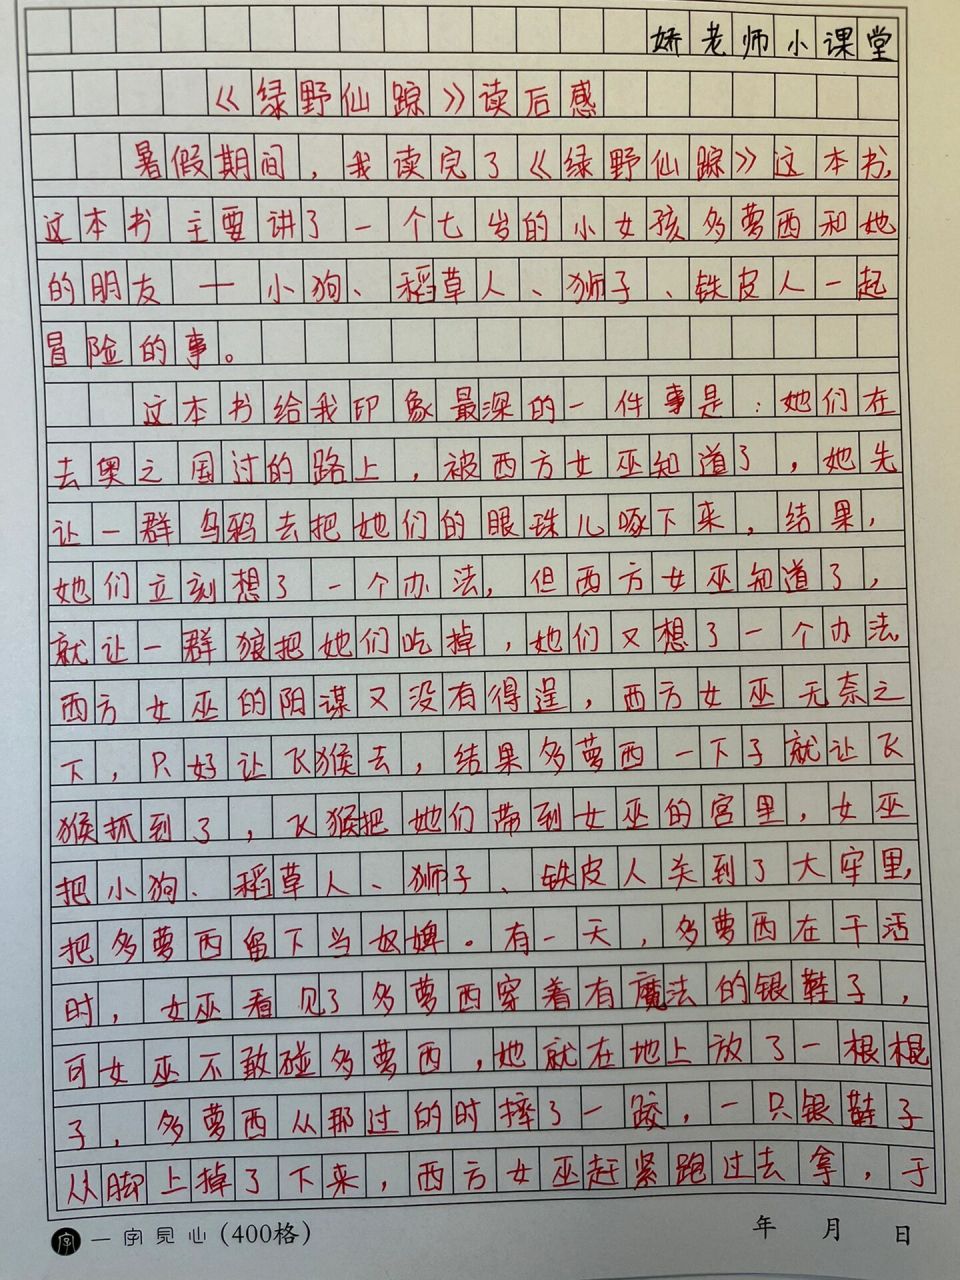 娇老师小课堂
《绿野仙踪》读后感
暑假期间，我读完了《绿野仙踪》这本书，
这本书主要讲了一个七岁的小女孩多萝西和她
的朋友——小狗、稻草人、狮子、铁皮人一起
冒险的事。
这本书给我印象最深的一件事是：她们在
去奥之国过的路上，被西方女巫知道了，她先
让一群乌鸦去把她们的眼珠儿啄下来，结果，
她们立刻想了一个办法，但西方女巫知道了，
就让一群狼把她们吃掉，她们又想了一个办法
西方女巫的阳谋又没有得逞，西方女巫无奈之
下，只好让飞猴去，结果多萝西一下子就让飞
猴抓到了，飞猴把她们带到女巫的宫里，女巫
把小狗、稻草人、狮子、铁皮人关到了大牢里，
把多萝西留下当奴婢。有一天，多萝西在干活
时，女巫看见了多萝西穿着有魔法的银鞋子，
可女巫不敢碰多萝西，她就在地上放了一根棍
子，多萝西从那过的时摔了一跤，一只银鞋子
从脚上掉了下来，西方女巫赶紧跑过去拿，于
一字见心(400格) 年 月 日